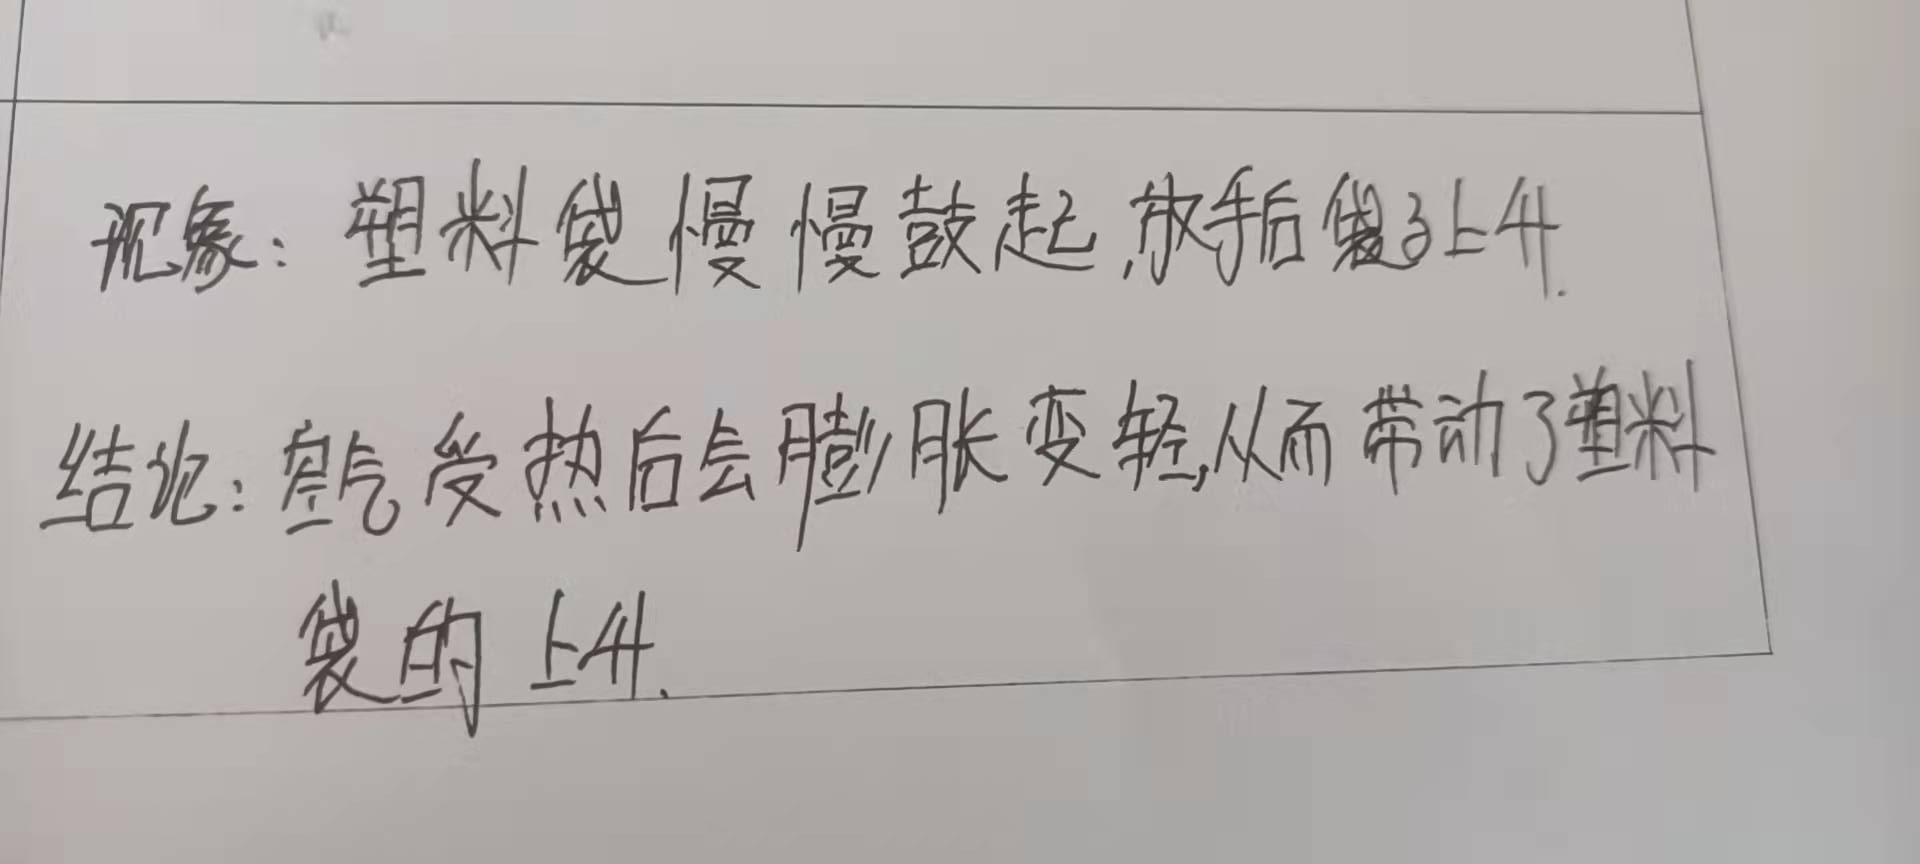 现象：塑料袋慢慢鼓起,放手后袋子上升.
结论：空气受热后会膨胀变轻,从而带动了塑料
袋的上升.